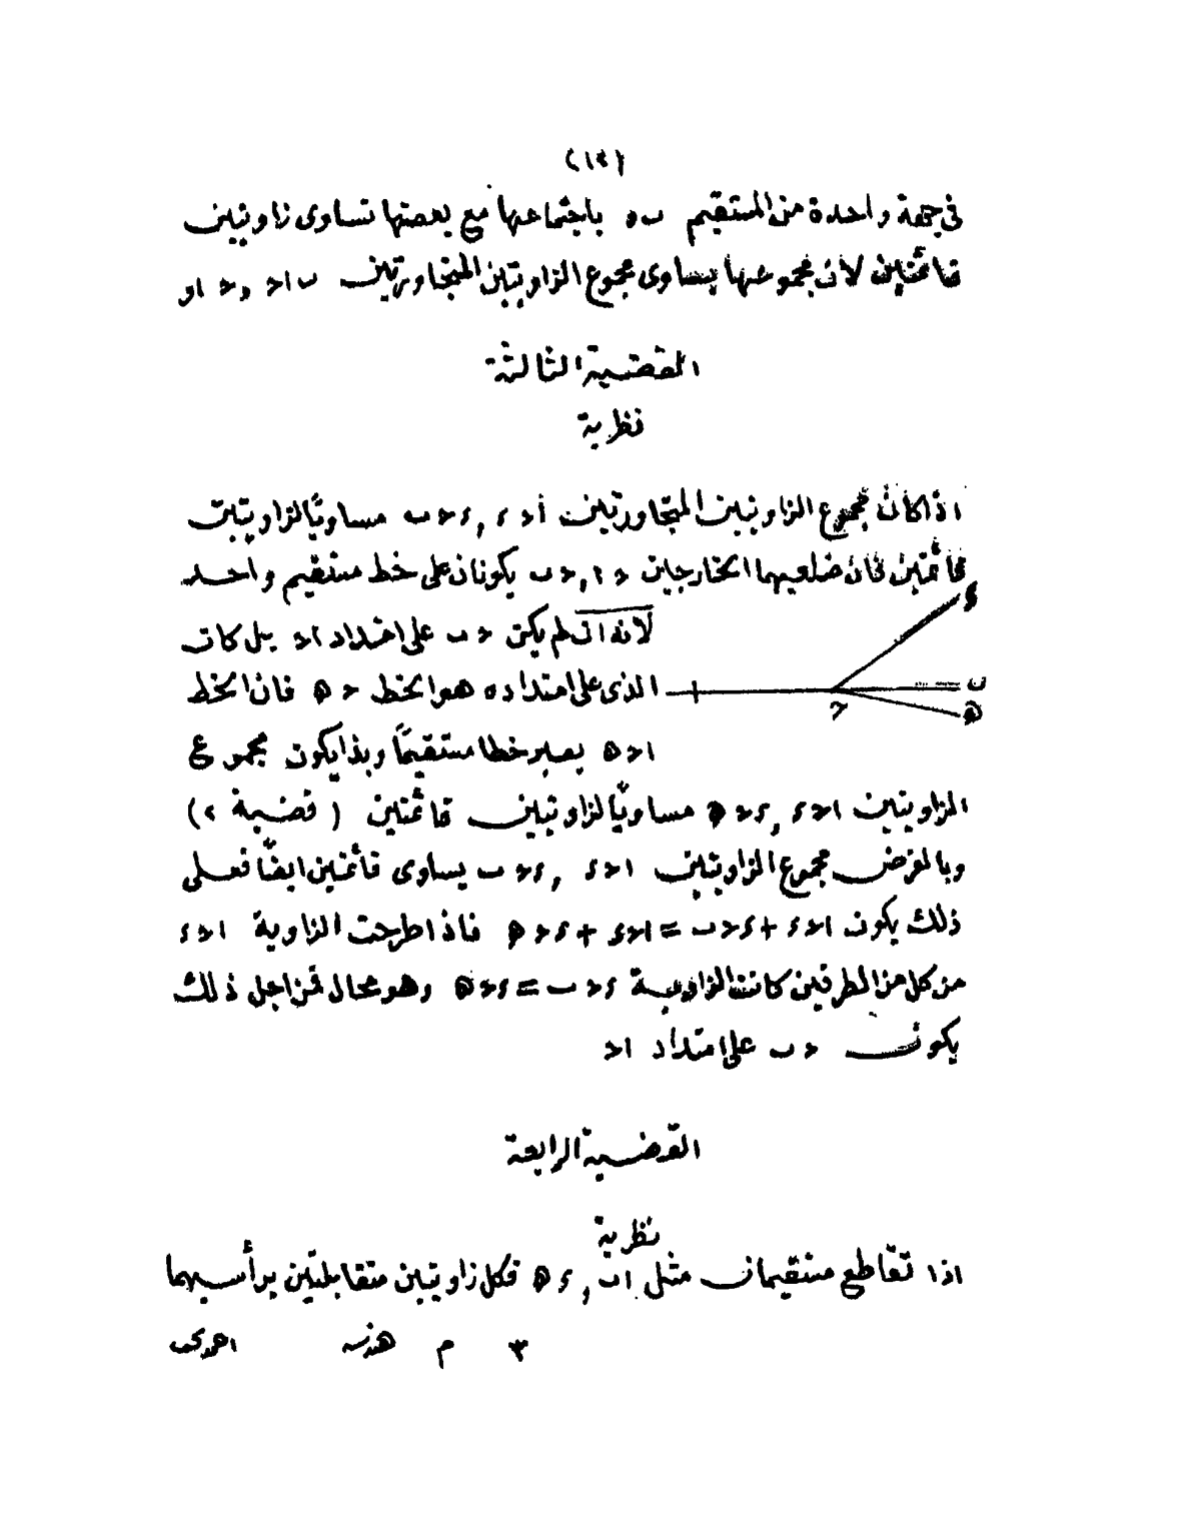 (١٣)
فى جهة واحدة من المستقيم ب ه باجتماعها مع بعضها تساوى زاويتين
قائمتين لان مجموعها يساوى مجموع الزاويتين المتجاورتين ب ا ح و ح ا و
القضية الثالثة
نظرية
اذا كان مجموع الزاويتين المتجاورتين ا ح د , د ح ب مساويًا لزاويتين
قائمتين فان ضلعيهما الخارجين ح ا , ح ب يكونان على خط مستقيم واحد
د
لانه ان لم يكن ح ب على امتداد ا ح بل كان
الذى على امتداده هو الخط ح ه فان الخط
ا
ب
ح
ه
ا ح ه يصير خطا مستقيمًا وبذا يكون مجموع
الزاويتين ا ح د , د ح ه مساويًا لزاويتين قائمتين ( قضية ٢ )
وبالفرض مجموع الزاويتين ا ح د , د ح ب يساوى قائمتين ايضًا فعلى
ذلك يكون ا ح د + د ح ب = ا ح د + د ح ه فاذا طرحت الزاوية ا ح د
من كل من الطرفين كانت الزاوية د ح ب = د ح ه وهو محال فمن اجل ذلك
يكون ح ب على امتداد ا ح
القضية الرابعة
نظرية
اذا تقاطع مستقيمان مثل ا ب , د ه فكل زاويتين متقابلتين برأسيهما
٣ م هندسه